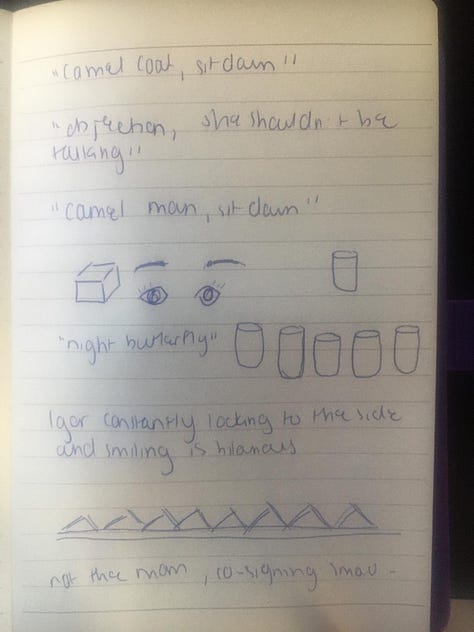 "camel coat, sit down"
"objection, she shouldn't be
talking"
"camel man, sit down"
"night butterfly"
Igor constantly looking to the side
and smiling is hilarious
not the mom, co-signing lmao -